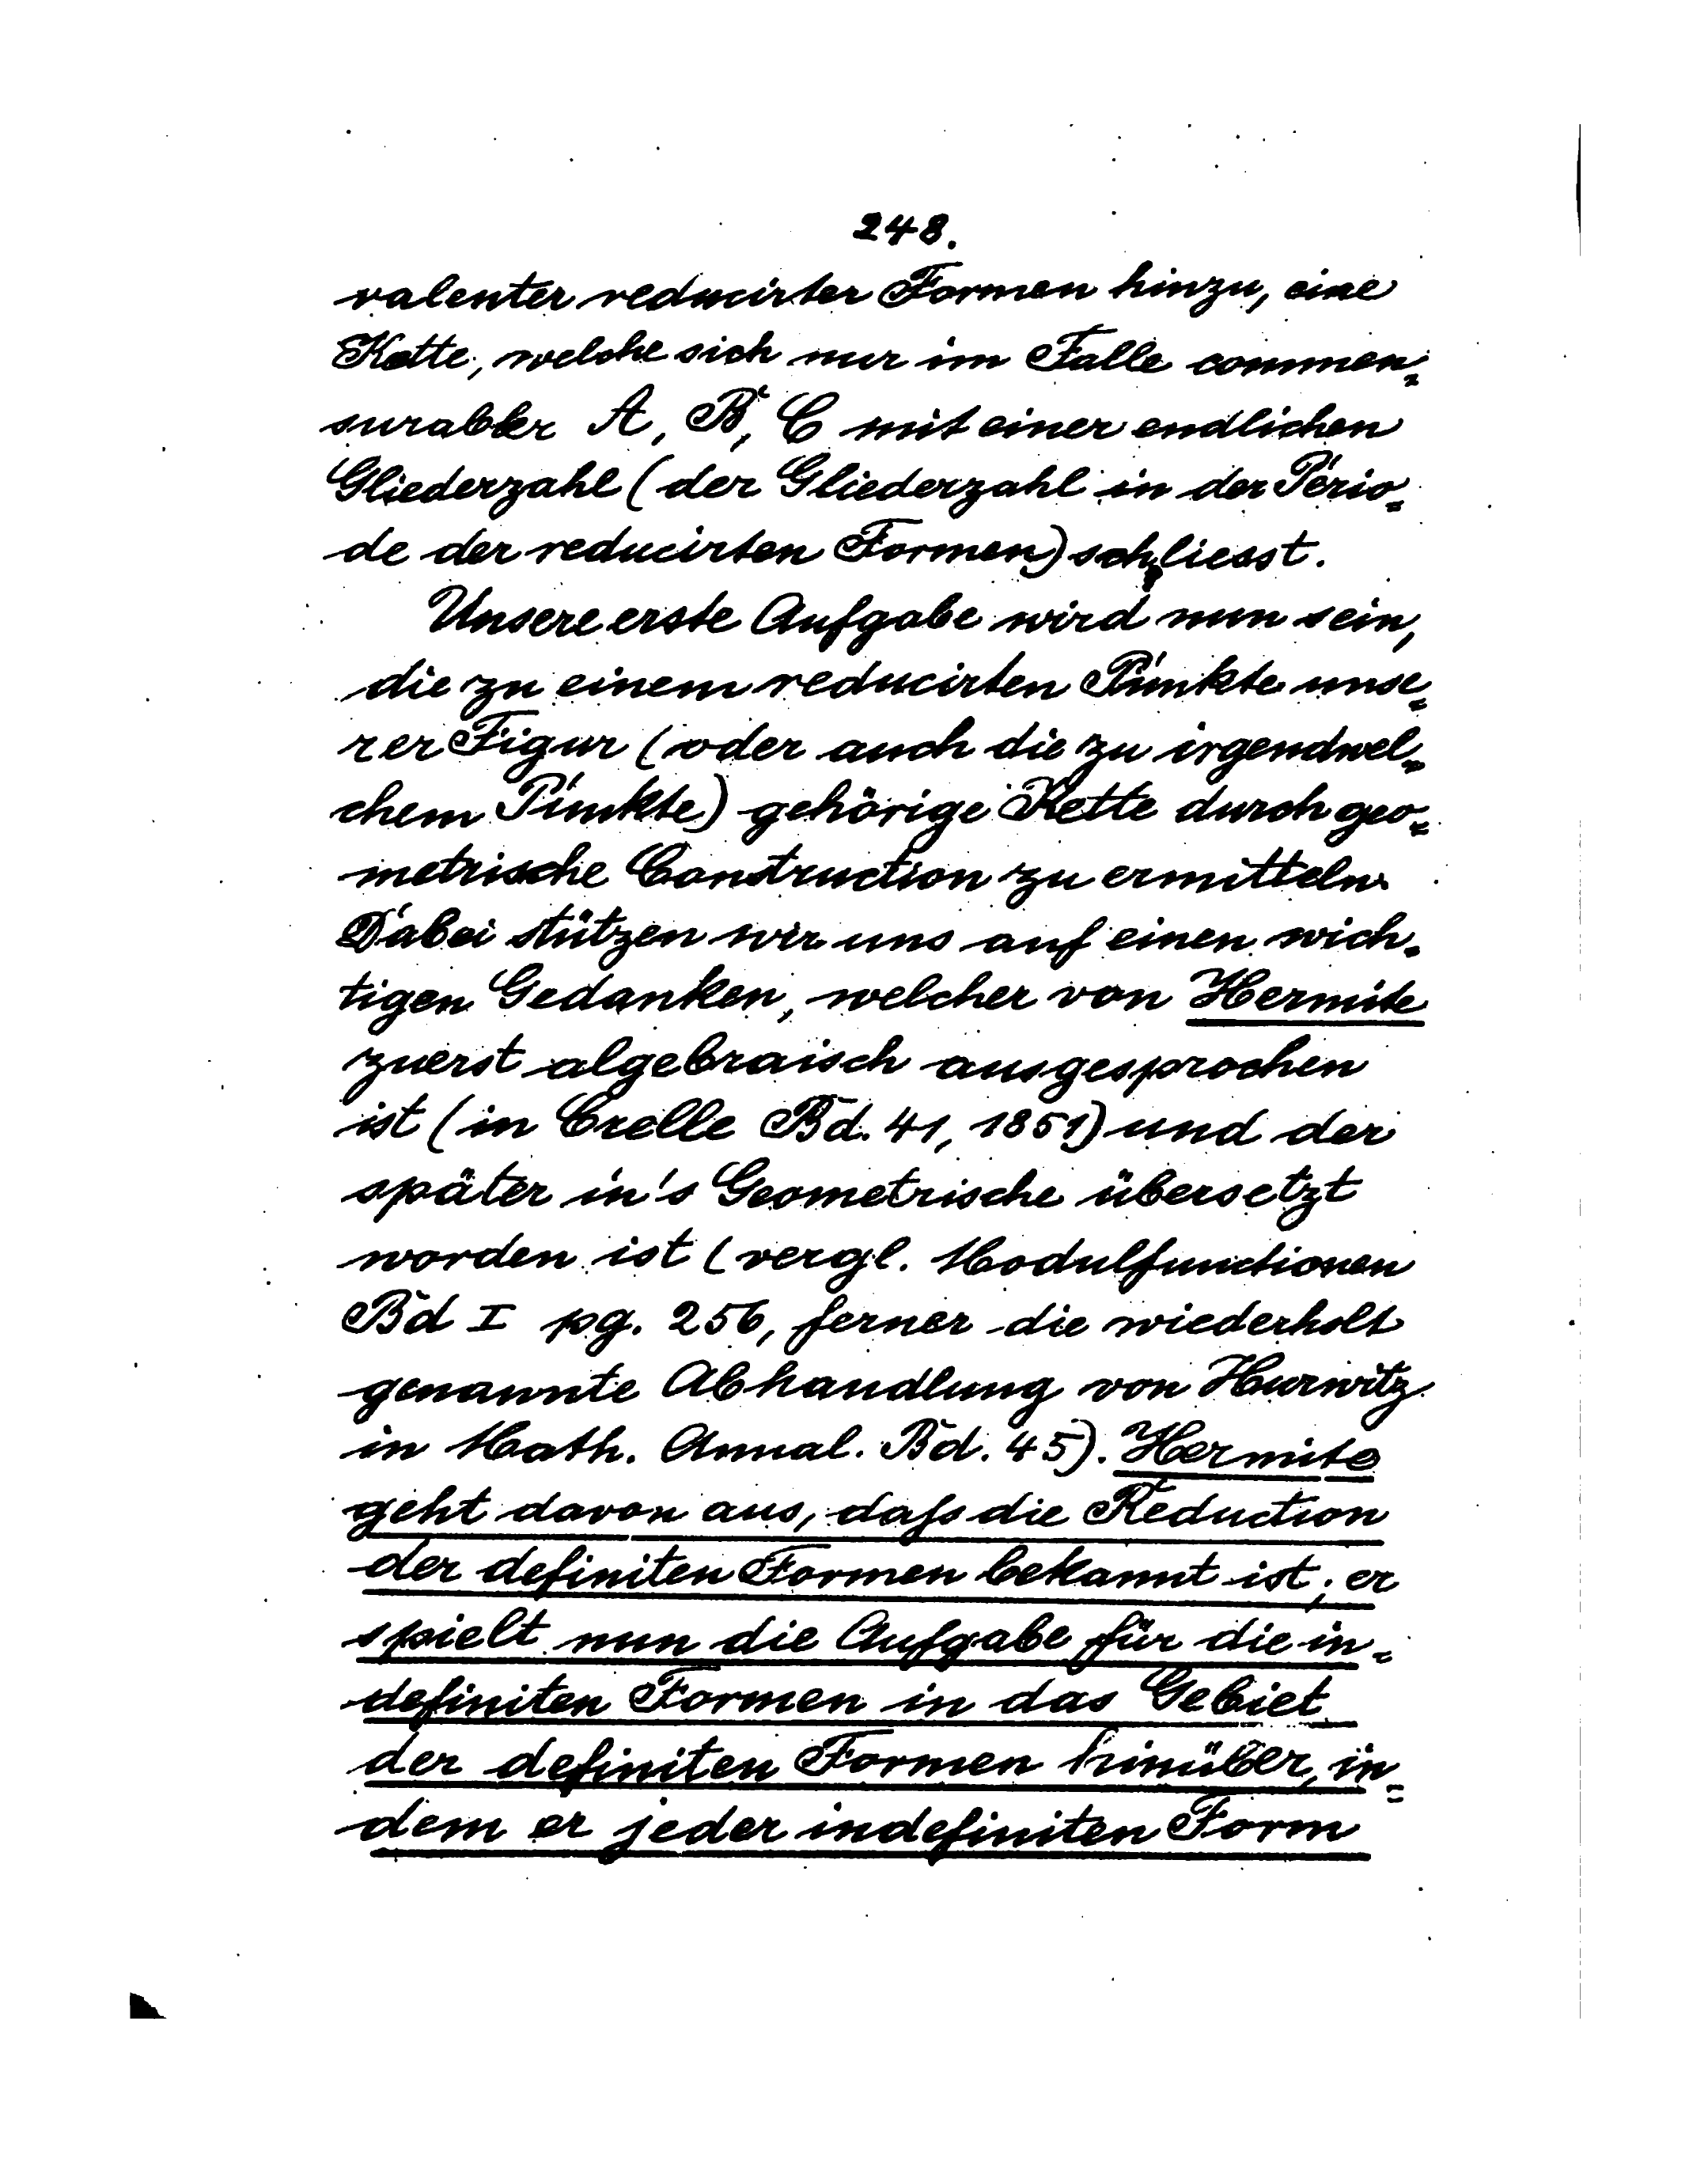 248.
valenter reducirter Formen hinzu, eine
Kette, welche sich nur im Falle commen-
surabler A, B, C mit einer endlichen
Gliederzahl (der Gliederzahl in der Perio-
de der reducirten Formen) schliesst.
Unsere erste Aufgabe wird nun sein,
die zu einem reducirten Punkte unse-
rer Figur (oder auch die zu irgendwel-
chem Punkte) gehörige Kette durch geo-
metrische Construction zu ermitteln.
Dabei stützen wir uns auf einen wich-
tigen Gedanken, welcher von Hermite
zuerst algebraisch ausgesprochen
ist (in Crelle Bd. 41, 1851) und der
später in's Geometrische übersetzt
worden ist (vergl. Modulfunctionen
Bd I pg. 256, ferner die wiederholt
genannte Abhandlung von Hurwitz
in Math. Annal. Bd. 45). Hermite
geht davon aus, daſs die Reduction
der definiten Formen bekannt ist; er
spielt nun die Aufgabe für die in-
definiten Formen in das Gebiet
der definiten Formen hinüber, in-
dem er jeder indefiniten Form